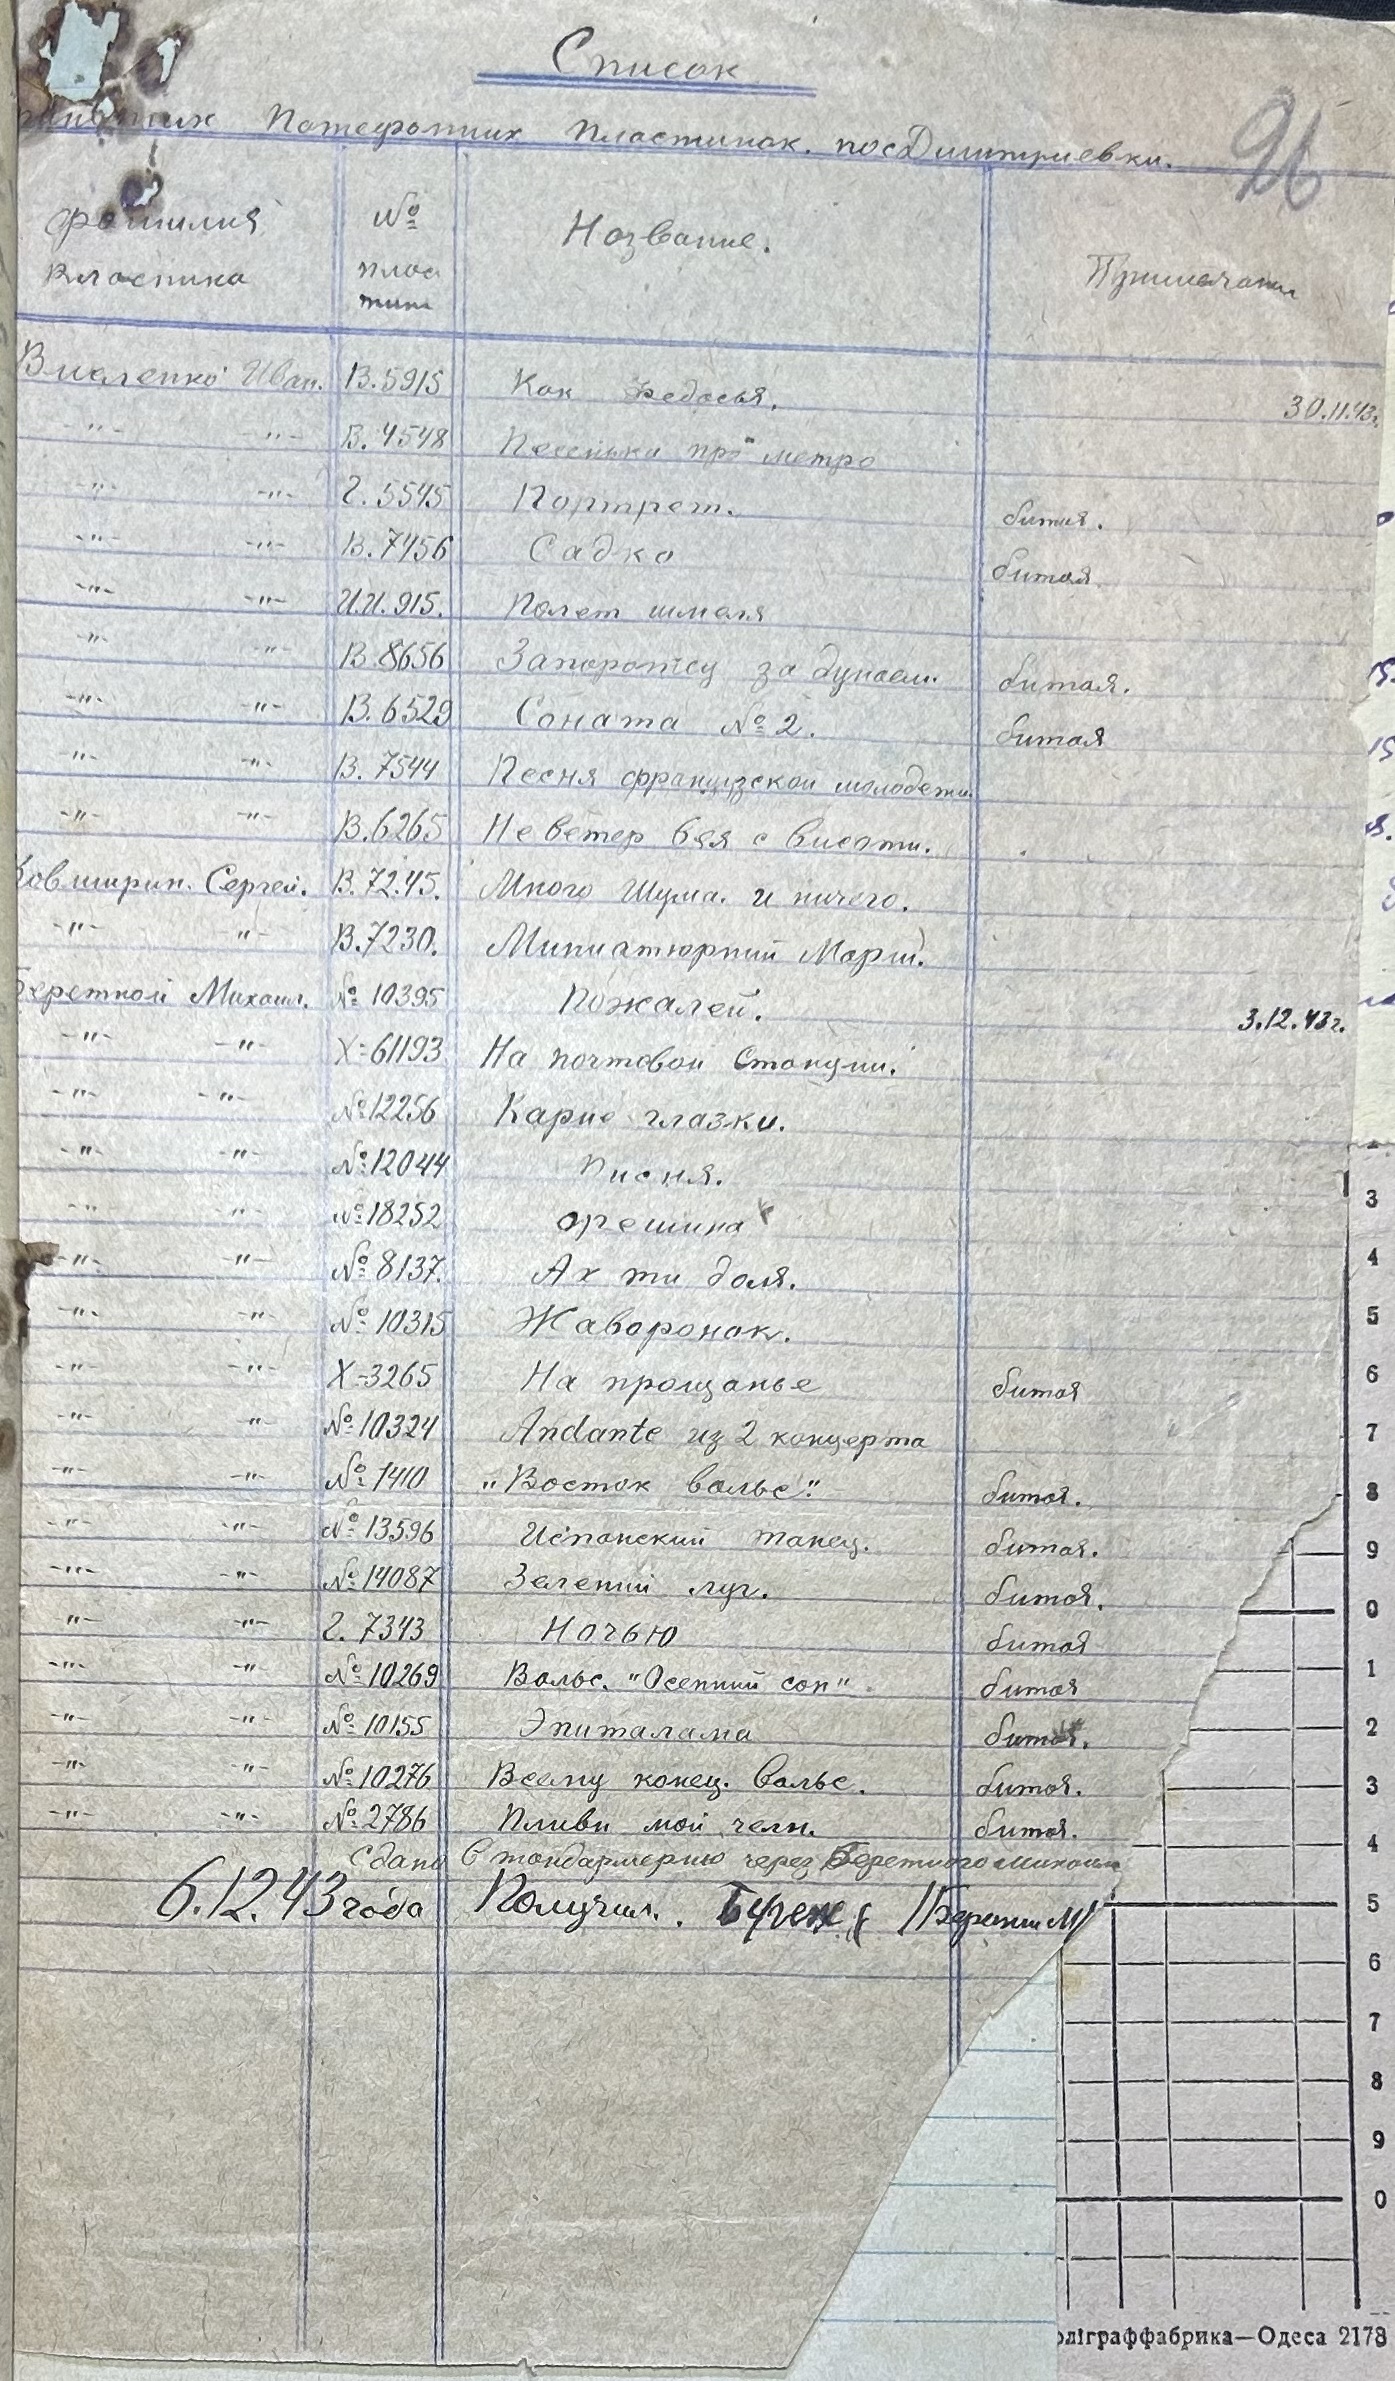 Список
Патефоних Пластинок. пос Дмитриевки.
96
фамилия Властика
№ плас тин
Название.
Примечания
Иван. В.5915 Как Федосья. 30.11.43г.
-"- -"- В.4548 Песенька про метро
-"- -"- Г.5545 Портрет. битая.
-"- -"- В.7456 Садко битая.
-"- -"- И.И.915. Полет шмеля
-"- -"- В.8656 Запорожец за дунаем. битая.
-"- -"- В.6529 Соната №2. битая
-"- -"- В.7544 Песня французской молодежи.
-"- -"- В.6265 Не ветер бея с висоти.
Сергей. В.7245. Много Шума. и ничего.
-"- -"- В.7230. Миниатюрний Марш.
Бережной Михаил. № 10395 Пожалей. 3.12.43г.
-"- -"- Х=61193 На почтовой Станции.
-"- -"- №12256 Карие глазки.
-"- -"- №12044 Писня.
-"- -"- №18252 орешина
-"- -"- №8137. Ах ти доля.
-"- -"- №10315 Жаворонок.
-"- -"- Х=3265 На прощанье битая
-"- -"- №10324 Andante из 2 концерта
-"- -"- №1410 "Восток вальс". битая.
-"- -"- №13596 Испанский танец. битая.
-"- -"- №14087 Зелений луг. битая.
-"- -"- Г.7343 Ночью битая
-"- -"- №10269 Вальс. "Осенний сон". битая
-"- -"- №10155 Эпиталама битая.
-"- -"- №10276 Всему конец. вальс. битая.
-"- -"- №2786 Пливи мой челн. битая.
Сдано в жандармерию через Бережного Михаила
6.12.43 года Получил. /Бережни М/
3
4
5
6
7
8
9
0
1
2
3
4
5
6
7
8
9
0
оліграффабрика—Одеса 2178